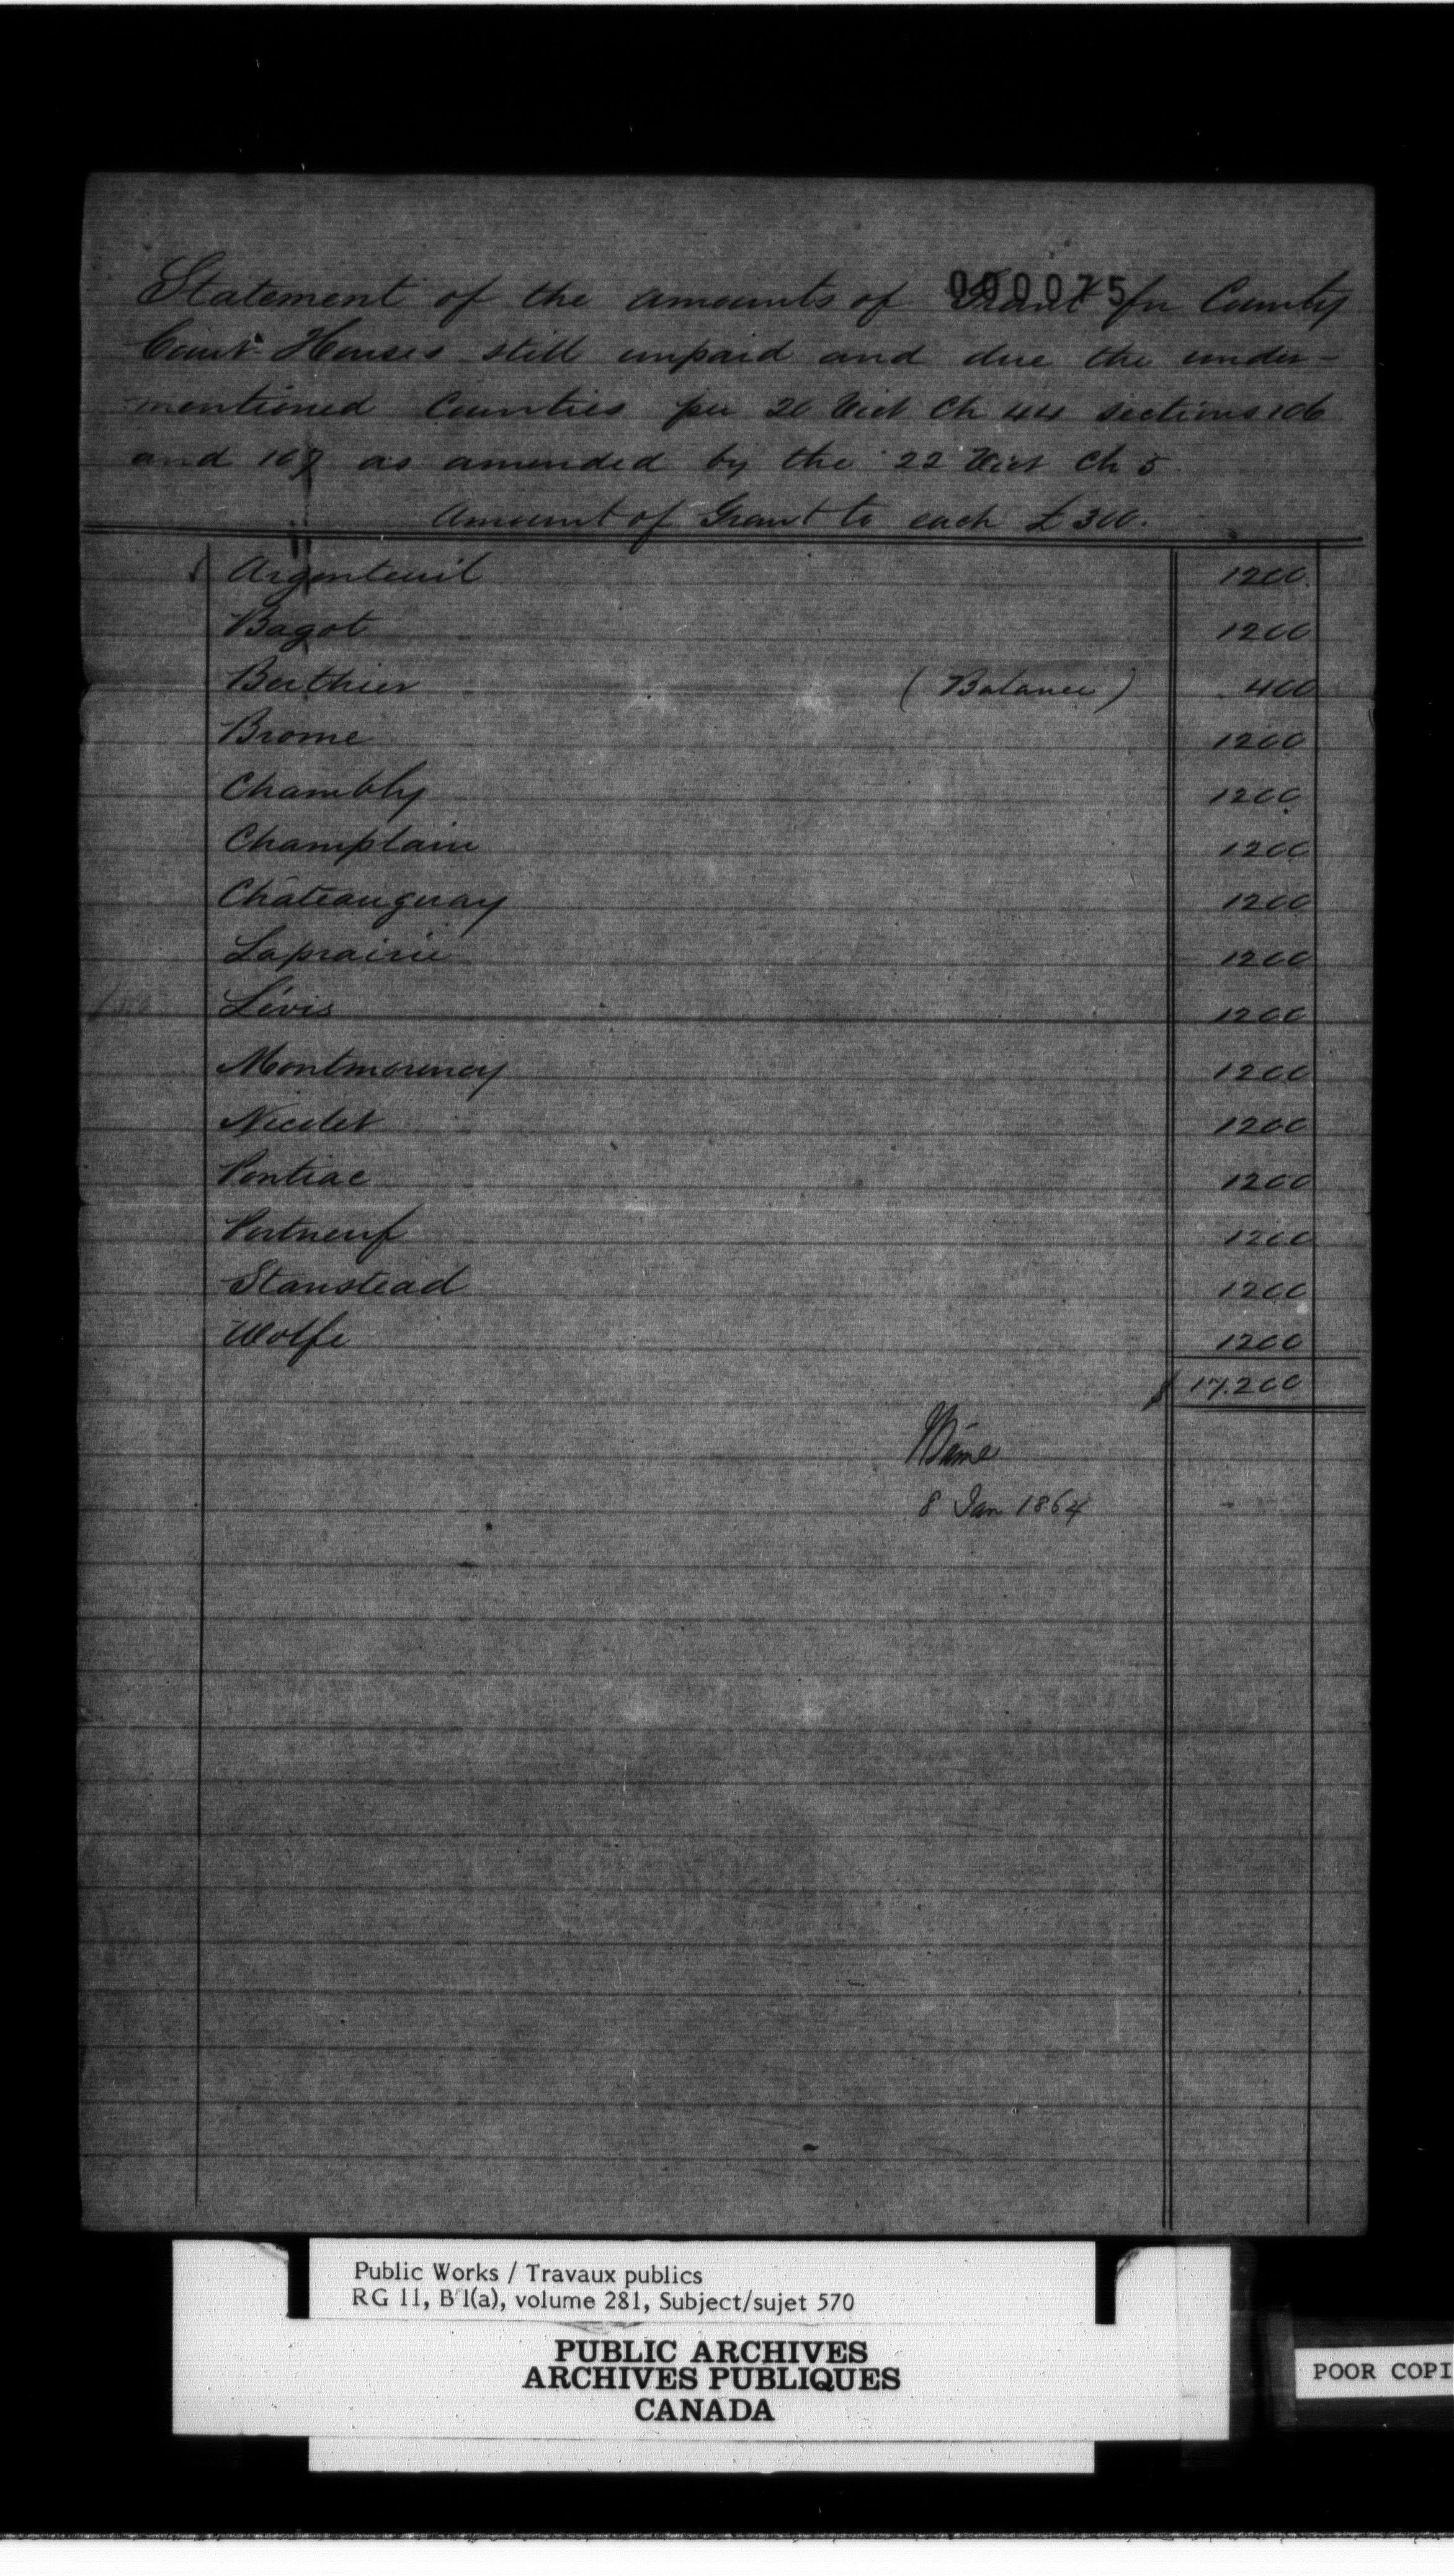 000075
Statement of the amounts of Grant for County
Court Houses still unpaid and due the under-
mentioned Counties per 20 Vict Ch 44 sections 106
and 107 as amended by the 22 Vict Ch 5
Amount of Grant to each £300.
Argenteuil 1200.
Bagot 1200
Berthier (Balance) 400
Brome 1200
Chambly 1200
Champlain 1200
Châteauguay 1200
Laprairie 1200
Lévis 1200
Montmorency 1200
Nicolet 1200
Pontiac 1200
Portneuf 1200
Stanstead 1200
Wolfe 1200
$ 17.200
8 Jan 1864
Public Works / Travaux publics
RG 11, B 1(a), volume 281, Subject/sujet 570
PUBLIC ARCHIVES
ARCHIVES PUBLIQUES
CANADA
POOR COPI